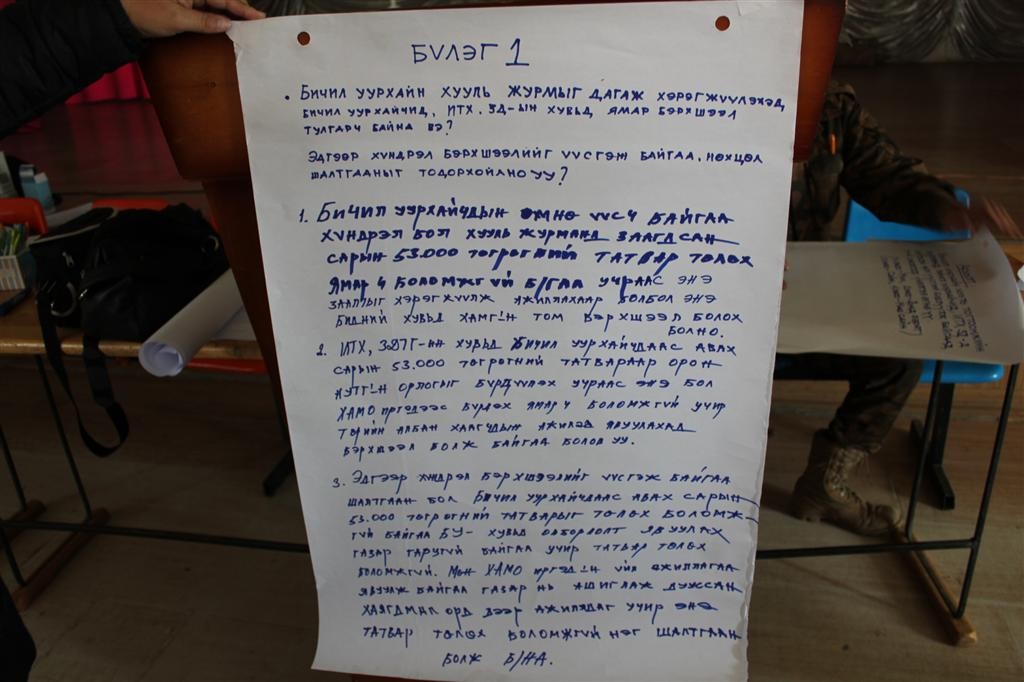 БҮЛЭГ 1
• БИЧИЛ УУРХАЙН ХУУЛЬ ЖУРМЫГ ДАГАЖ ХЭРЭГЖҮҮЛЭХЭД
БИЧИЛ УУРХАЙЧИД, ИТХ, ЗД-ЫН ХУВЬД ЯМАР БЭРХШЭЭЛ
ТУЛГАРЧ БАЙНА ВЭ?
ЭДГЭЭР ХҮНДРЭЛ БЭРХШЭЭЛИЙГ ҮҮСГЭЖ БАЙГАА, НӨХЦӨЛ
ШАЛТГААНЫГ ТОДОРХОЙЛНО УУ?
1. БИЧИЛ УУРХАЙЧДЫН ӨМНӨ ҮҮСЧ БАЙГАА
ХҮНДРЭЛ БОЛ ХУУЛЬ ЖУРМАНД ЗААГДСАН
САРЫН 53.000 ТӨГРӨГНИЙ ТАТВАР ТӨЛӨХ
ЯМАР Ч БОЛОМЖГҮЙ Б/ГАА УЧРААС ЭНЭ
ЗААЛТЫГ ХЭРЭГЖҮҮЛЖ АЖИЛЛАХААР БОЛБОЛ ЭНЭ
БИДНИЙ ХУВЬД ХАМГ!Н ТОМ БЭРХШЭЭЛ БОЛОХ
БОЛНО.
2. ИТХ, ЗДТГ-ЫН ХУВЬД БИЧИЛ УУРХАЙЧДААС АВАХ
САРЫН 53.000 ТӨГРӨГНИЙ ТАТВАРААР ОРОН
НУТГ!Н ОРЛОГЫГ БҮРДҮҮЛЭХ УЧРААС ЭНЭ БОЛ
ХАМО ИРГЭДЭЭС БҮРДЭХ ЯМАР Ч БОЛОМЖГҮЙ УЧИР
ТӨРИЙН АЛБАН ХААГЧДЫН АЖИЛЭД ЯВУУЛАХАД
БЭРХШЭЭЛ БОЛЖ БАЙГАА БОЛОВ УУ.
3. ЭДГЭЭР ХҮНДРЭЛ БЭРХШЭЭЛИЙГ ҮҮСГЭЖ БАЙГАА
ШАЛТГААН БОЛ БИЧИЛ УУРХАЙЧДААС АВАХ САРЫН
53.000 ТӨГРӨГНИЙ ТАТВАРЫГ ТӨЛӨХ БОЛОМЖ-
ГҮЙ БАЙГАА БУ- ХУВЬД ОЛБОРЛОЛТ ЯВУУЛАХ
ГАЗАР ГАРУГҮЙ БАЙГАА УЧИР ТАТВАР ТӨЛӨХ
БОЛОМЖГҮЙ. МӨН ХАМО ИРГЭД!Н ҮЙЛ АЖИЛЛАГАА
ЯВУУЛЖ БАЙГАА ГАЗАР НЬ АШИГЛАЖ ДУУССАН
ХАЯГДМАЛ ОРД ДЭЭР АЖИЛЛДАГ УЧИР ЭНЭ
ТАТВАР ТӨЛӨХ БОЛОМЖГҮЙ НЭГ ШАЛТГААН
БОЛЖ Б/НА.